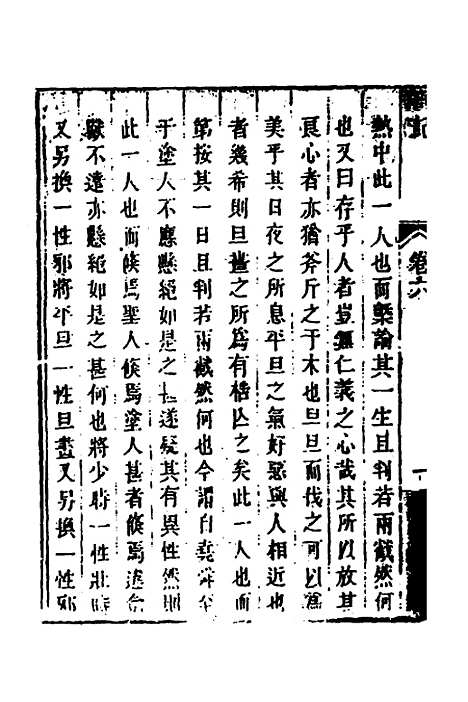 熱中此一人也而槩論其一生且判若兩截然何
也又曰存乎人者豈無仁義之心哉其所以放其
良心者亦猶斧斤之于木也旦旦而伐之可以為
美乎其日夜之所息平旦之氣好惡與人相近也
者幾希則旦晝之所為有梏亡之矣此一人也而
第按其一日且判若兩截然何也今謂自堯舜至
于塗人不應懸絕如是之甚遂疑其有異性然則
此一人也而倐焉聖人倐焉塗人甚者倐焉違禽
獸不遠亦懸絕如是之甚何也將少時一性壯時
又另換一性邪將平旦一性旦晝又另換一性邪
卷六